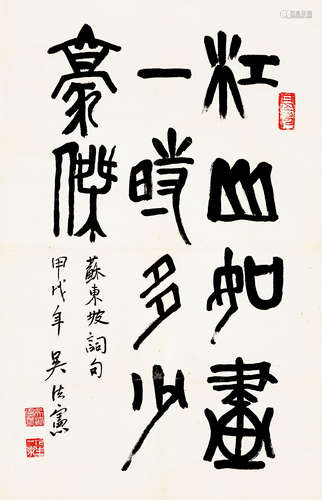 江山如畫
一時多少
豪傑
蘇東坡詞句
甲戌年 吴法憲